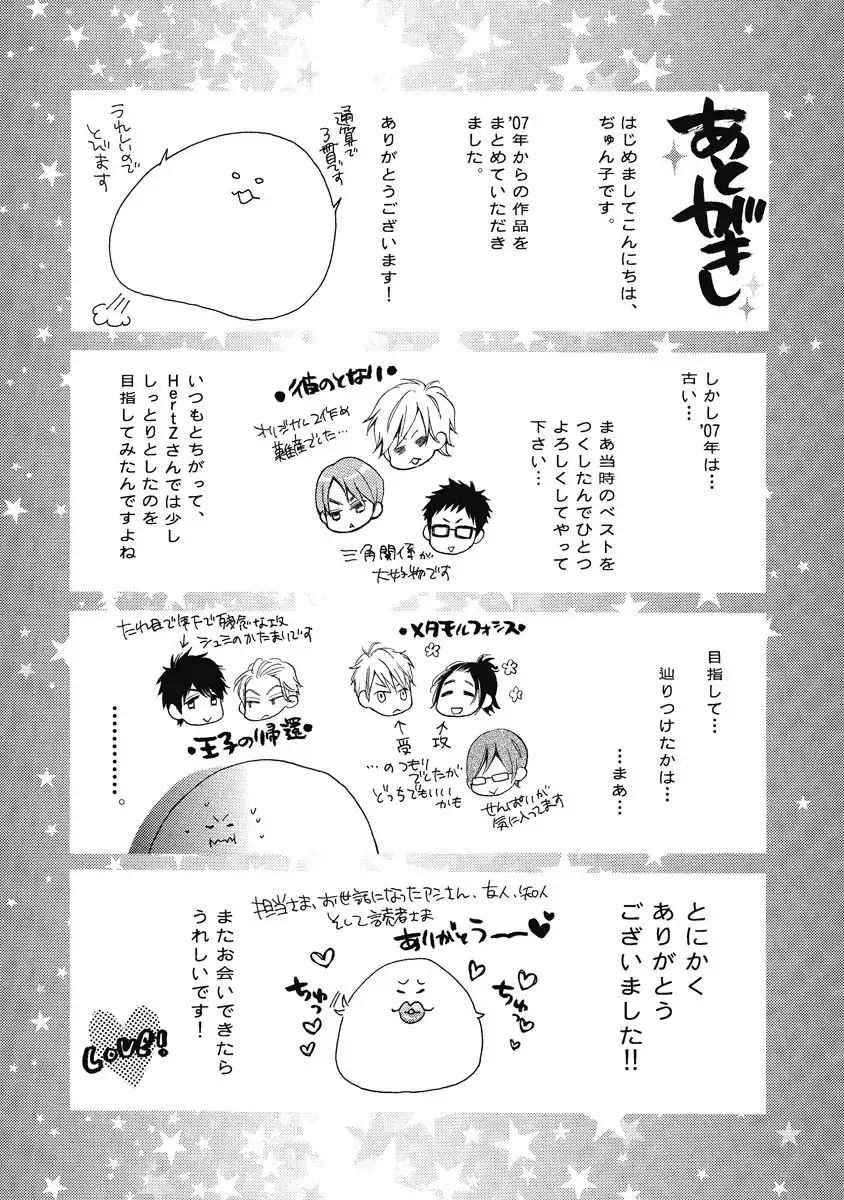 あとがき
はじめましてこんにちは、
ぢゅん子です。
'07年からの作品を
まとめていただき
ました。
ありがとうございます!
通算で
3冊です
うれしいので
とびます
しかし'07年は…
古い…
まあ当時のベストを
つくしたんでひとつ
よろしくしてやって
下さい…
・彼のとなり・
オリジナル2作め
難産でした…
三角関係が
大好物です
いつもとちがって、
HertZさんでは少し
しっとりとしたのを
目指してみたんですよね
目指して…
辿りつけたかは…
…まあ…
・メタモルフォシス・
受
攻
…のつもり
でしたが
どっちでもいい
かも
せんぱいが
気に入ってます
たれ目で年下で残念な攻
シュミのかたまりです
・王子の帰還・
…………。
とにかく
ありがとう
ございました!!
担当さま、お世話になったアシさん、友人、知人
そして読者さま
ありがとうーー♥
ちゅっ
ちゅっ
またお会いできたら
うれしいです!
LOVE!